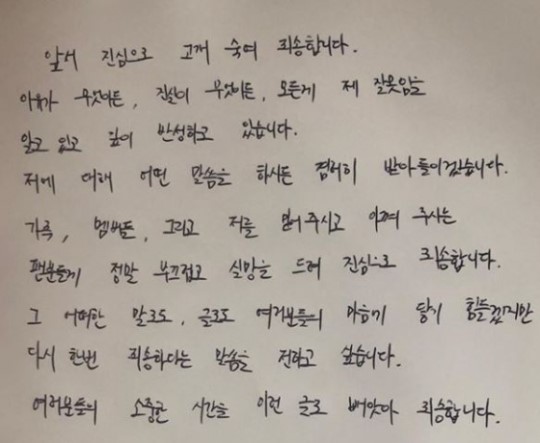 앞서 진심으로 고개 숙여 죄송합니다.
이유가 무엇이든, 진실이 무엇이든, 모든게 제 잘못임을
알고 있고 깊이 반성하고 있습니다.
저에 대해 어떤 말씀을 하시든 겸허히 받아들이겠습니다.
가족, 멤버들, 그리고 저를 믿어주시고 아껴 주시는
팬분들께 정말 부끄럽고 실망을 드려 진심으로 죄송합니다.
그 어떠한 말로도, 글로도 여러분들의 마음이 닿기 힘들겠지만
다시 한번 죄송하다는 말씀을 전하고 싶습니다.
여러분들의 소중한 시간을 이런 글로 빼앗아 죄송합니다.